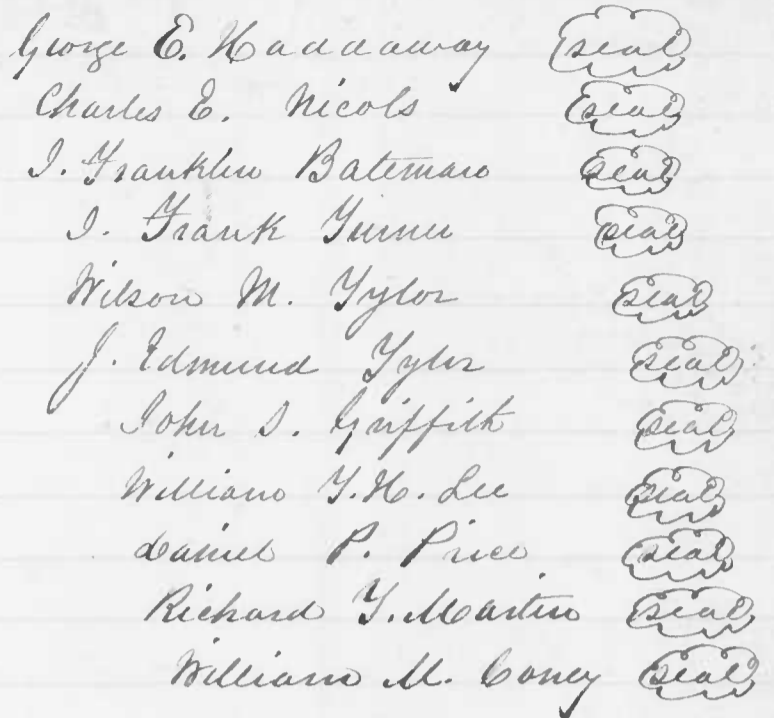 George E. Haddaway seal
Charles E. Nicols seal
I. Franklin Bateman seal
I. Frank Turner seal
Wilson M. Tylor seal
J. Edmund Tylor seal
John S. Griffith seal
William T. H. Lee seal
Daniel P. Price seal
Richard T. Martin seal
William M. Coney seal